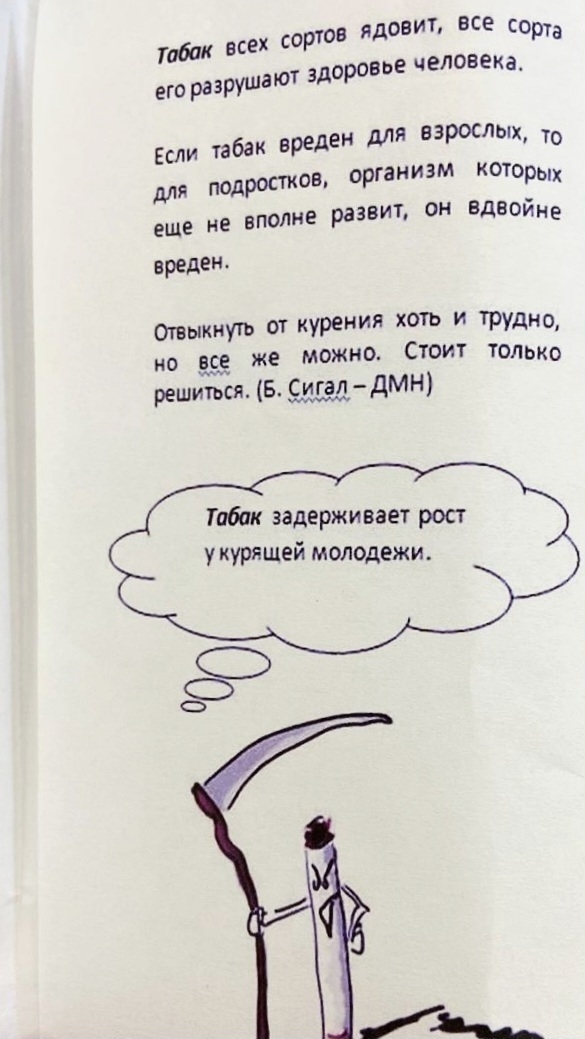 Табак всех сортов ядовит, все сорта
его разрушают здоровье человека.
Если табак вреден для взрослых, то
для подростков, организм которых
еще не вполне развит, он вдвойне
вреден.
Отвыкнуть от курения хоть и трудно,
но все же можно. Стоит только
решиться. (Б. Сигал – ДМН)
Табак задерживает рост
у курящей молодежи.